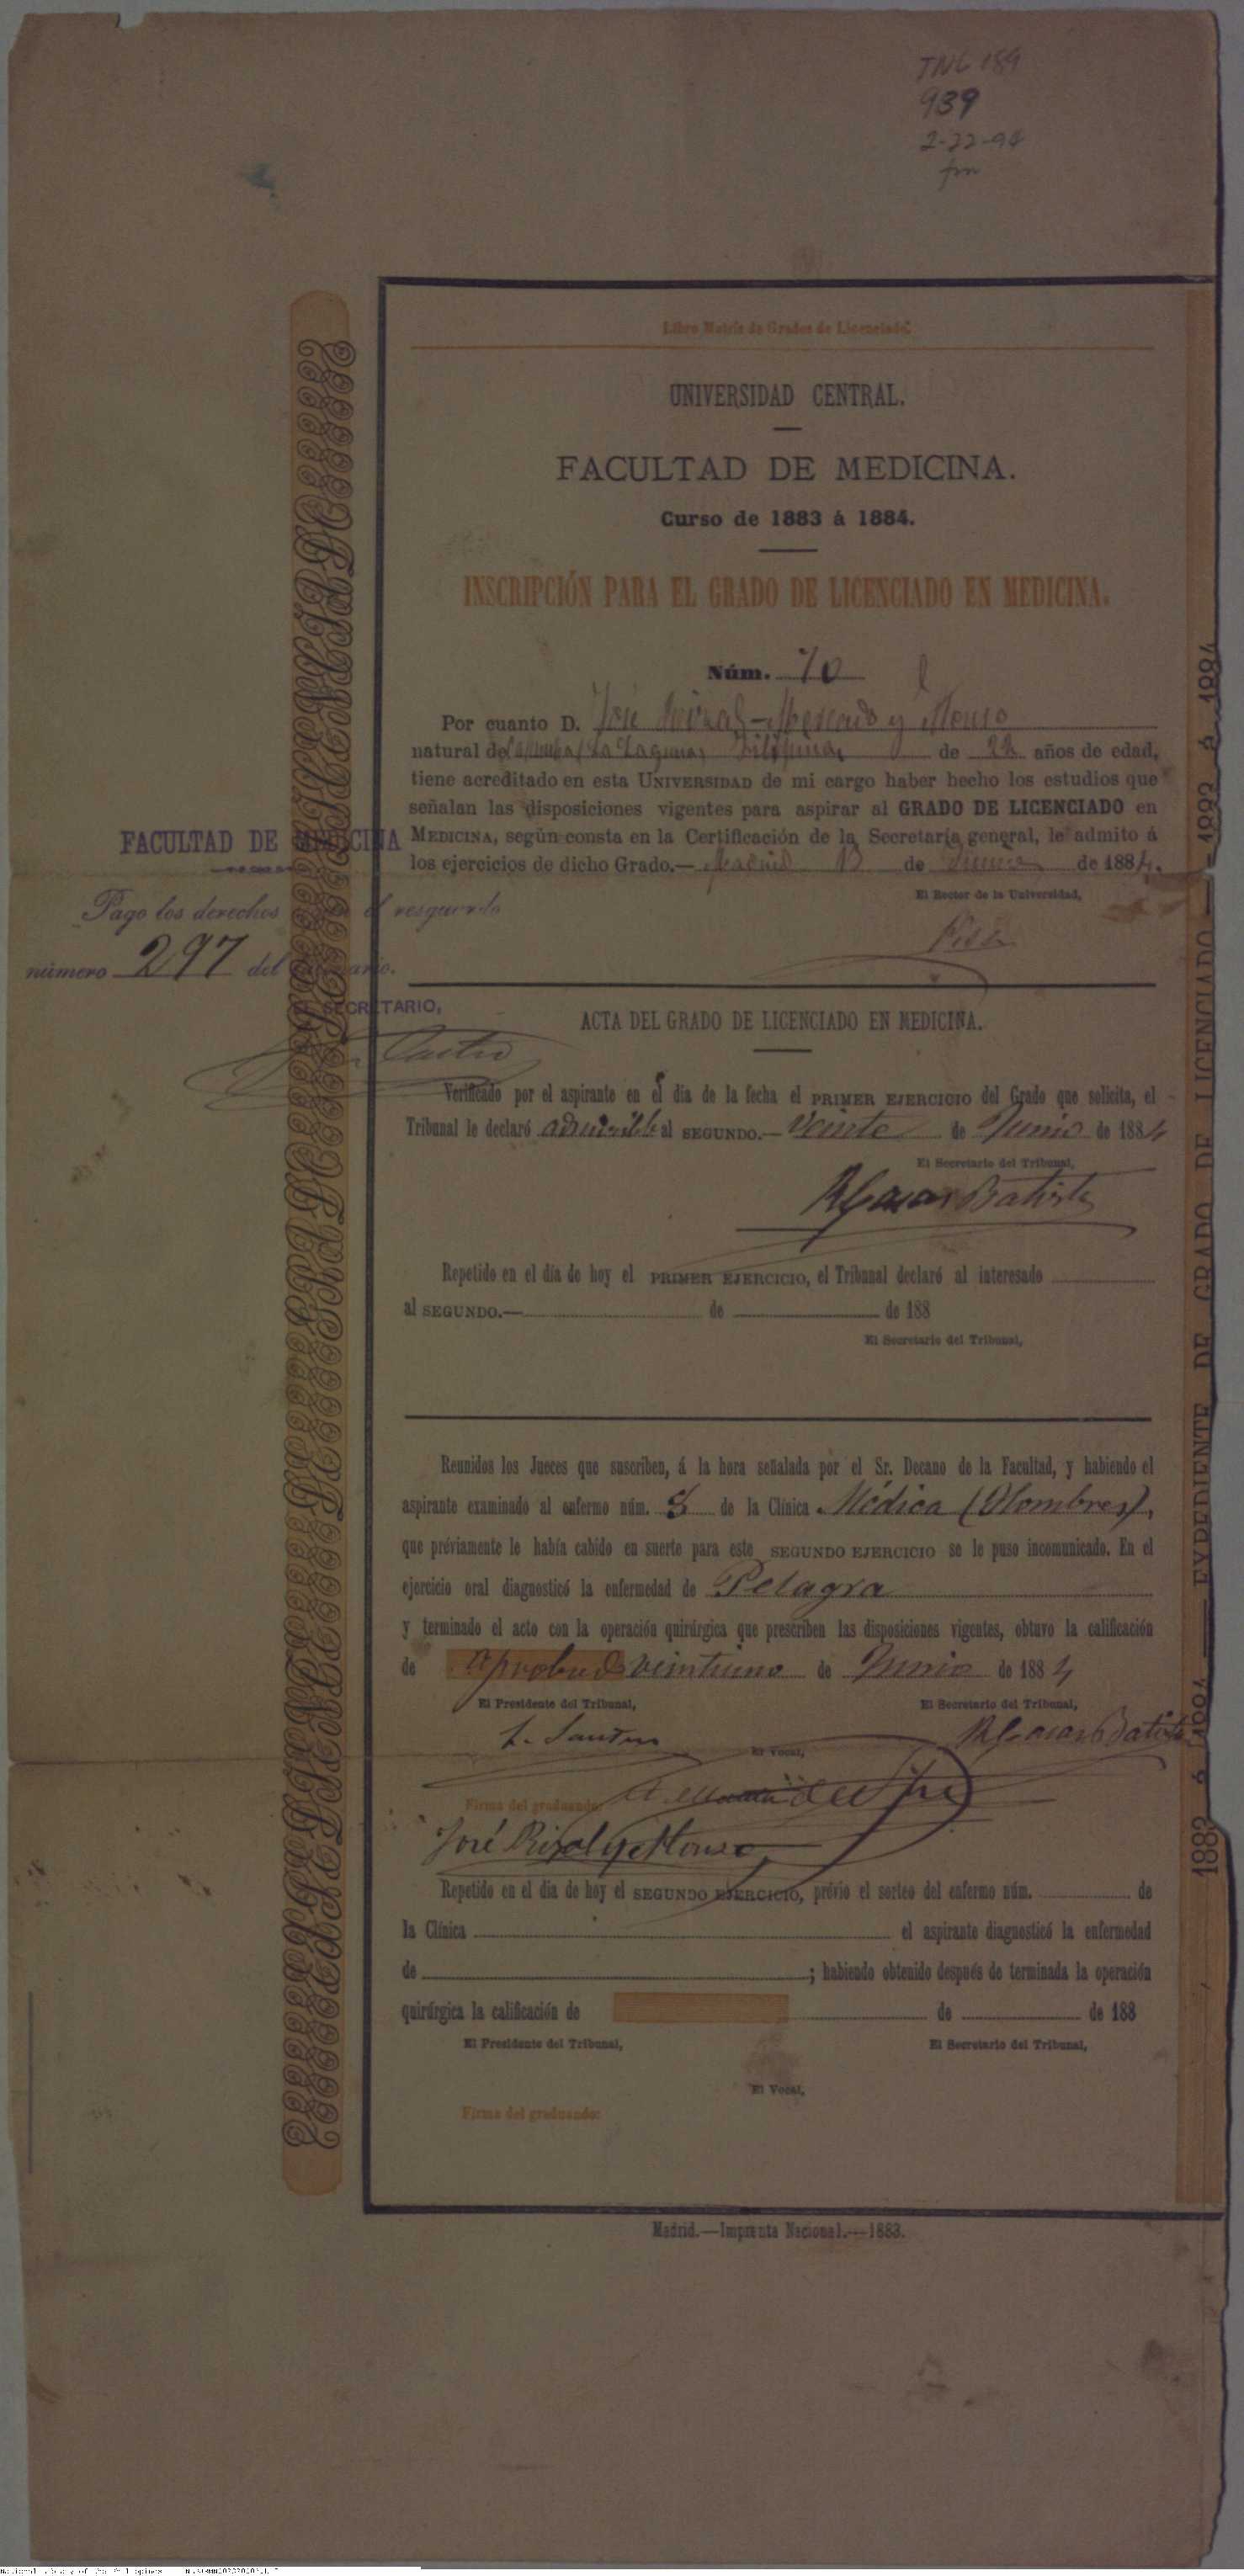 TNL 189
939
2-22-94
fm
Libro Matriz de Grados de Licenciado.
UNIVERSIDAD CENTRAL.
FACULTAD DE MEDICINA.
Curso de 1883 á 1884.
INSCRIPCIÓN PARA EL GRADO DE LICENCIADO EN MEDICINA.
Núm. 70
Por cuanto D. José Rizal-Mercado y Alonso
natural de Calamba, La Laguna, Filipinas de 22 años de edad,
tiene acreditado en esta UNIVERSIDAD de mi cargo haber hecho los estudios que
señalan las disposiciones vigentes para aspirar al GRADO DE LICENCIADO en
MEDICINA, según consta en la Certificación de la Secretaría general, le admito á
los ejercicios de dicho Grado.— Madrid 13 de Junio de 1884.
El Rector de la Universidad,
Pisa
FACULTAD DE MEDICINA
Pago los derechos el resguardo
número 297 del
EL SECRETARIO,
Castro
ACTA DEL GRADO DE LICENCIADO EN MEDICINA.
Verificado por el aspirante en el dia de la fecha el PRIMER EJERCICIO del Grado que solicita, el
Tribunal le declaró admisible al SEGUNDO.— Veinte de Junio de 1884
El Secretario del Tribunal,
Batista
Repetido en el día de hoy el PRIMER EJERCICIO, el Tribunal declaró al interesado
al SEGUNDO.— de de 188
El Secretario del Tribunal,
Reunidos los Jueces que suscriben, á la hora señalada por el Sr. Decano de la Facultad, y habiendo el
aspirante examinado al enfermo núm. 8 de la Clínica Médica (Hombres),
que préviamente le había cabido en suerte para este SEGUNDO EJERCICIO se le puso incomunicado. En el
ejercicio oral diagnosticó la enfermedad de Pelagra
y terminado el acto con la operación quirúrgica que prescriben las disposiciones vigentes, obtuvo la calificación
de Aprobado veintiuno de Junio de 1884
El Presidente del Tribunal, El Secretario del Tribunal,
Batista
El Vocal,
Firma del graduando:
José Rizal y Alonso
Repetido en el dia de hoy el SEGUNDO EJERCICIO, prévio el sorteo del enfermo núm. de
la Clínica el aspirante diagnosticó la enfermedad
de ; habiendo obtenido después de terminada la operación
quirúrgica la calificación de de de 188
El Presidente del Tribunal, El Secretario del Tribunal,
El Vocal,
Firma del graduando:
Madrid.—Imprenta Nacional.—1883.
1883 á 1884 — EXPEDIENTE DE GRADO DE LICENCIADO — 1883 á 1884
National Library of the Philippines